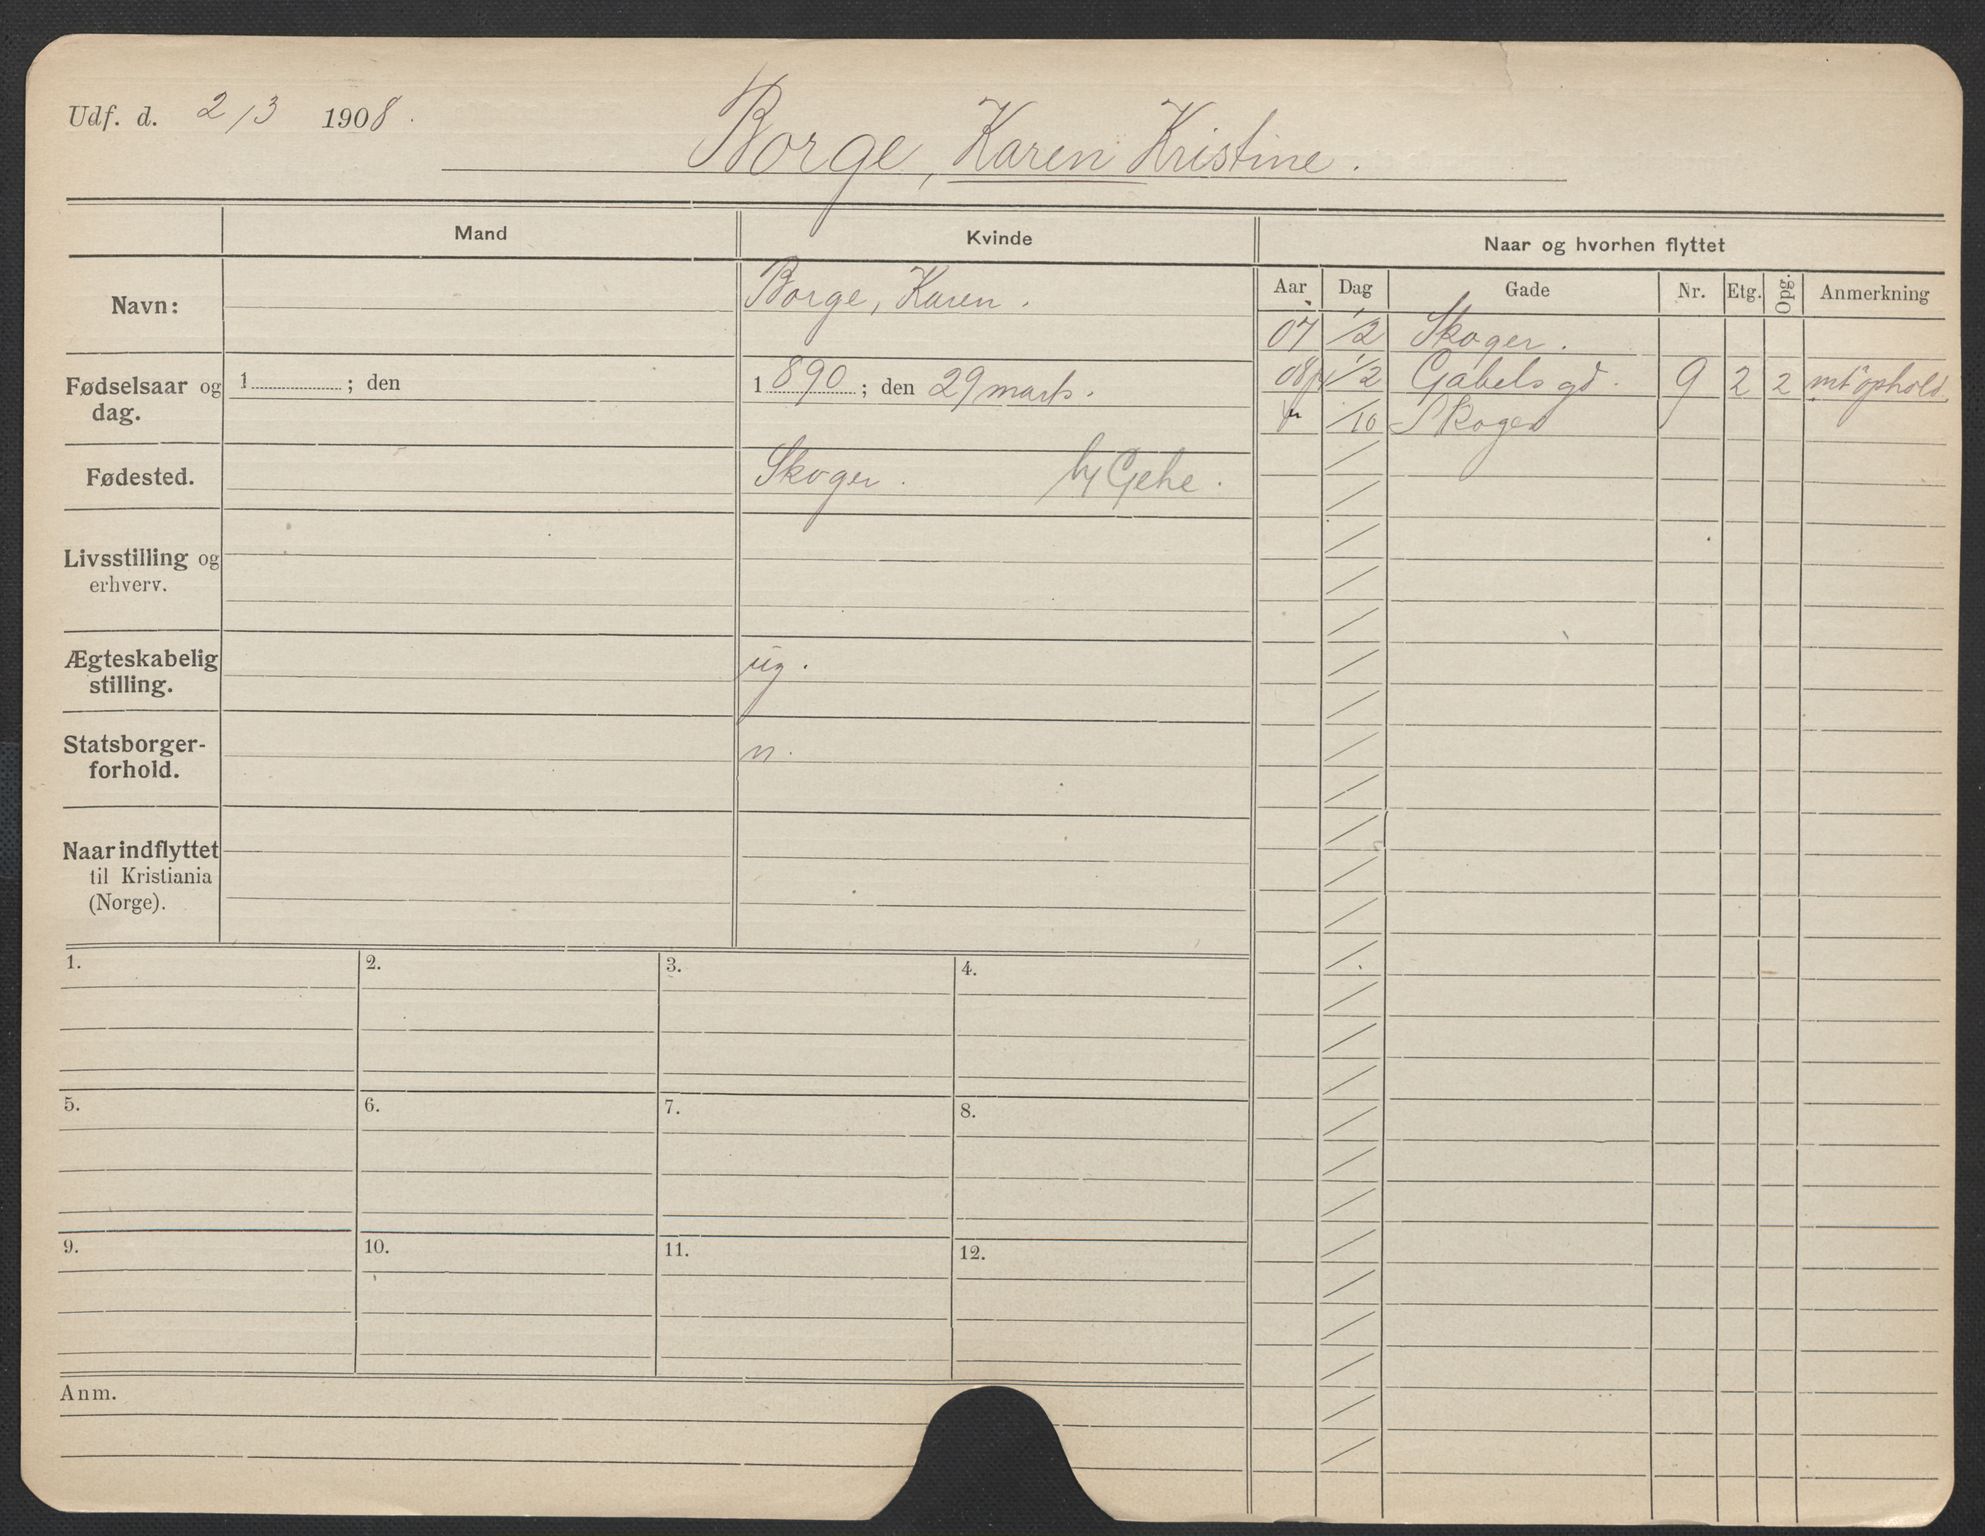 Udf. d. 2/3 1908.
Borge, Karen Kristine.
Mand
Kvinde
Naar og hvorhen flyttet
Aar
Dag
Gade
Nr.
Etg.
Opg.
Anmerkning
Navn:
Borge, Karen.
07 1/2 Skoger.
Fødselsaar og
dag.
1 ; den
1890 ; den 29 marts.
08 1/2 Gabels gd. 9 2 2 mt ophold
/10 Skoger
Fødested.
Skoger. Gehe.
Livsstilling og
erhverv.
Ægteskabelig
stilling.
ug.
Statsborger-
forhold.
n.
Naar indflyttet
til Kristiania
(Norge).
1.
2.
3.
4.
5.
6.
7.
8.
9.
10.
11.
12.
Anm.